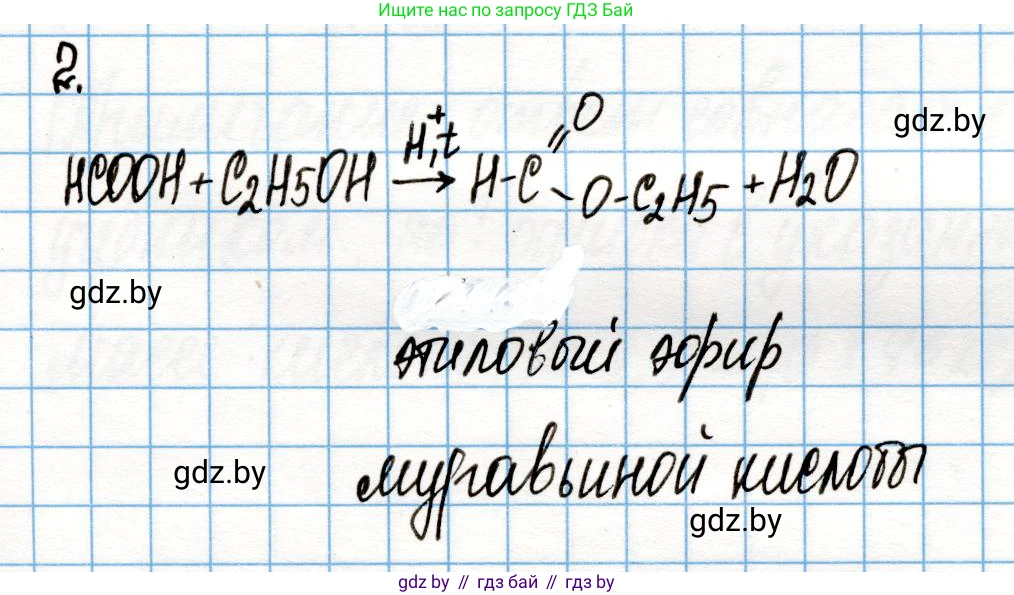 Ищите нас по запросу ГДЗ Бай
2.
gdz.by
HCOOH + C2H5OH H+, t → H-C =O -O-C2H5 + H2O
gdz.by
этиловый эфир
gdz.by
муравьиной кислоты
gdz.by
gdz by // гдз бай // гдз by